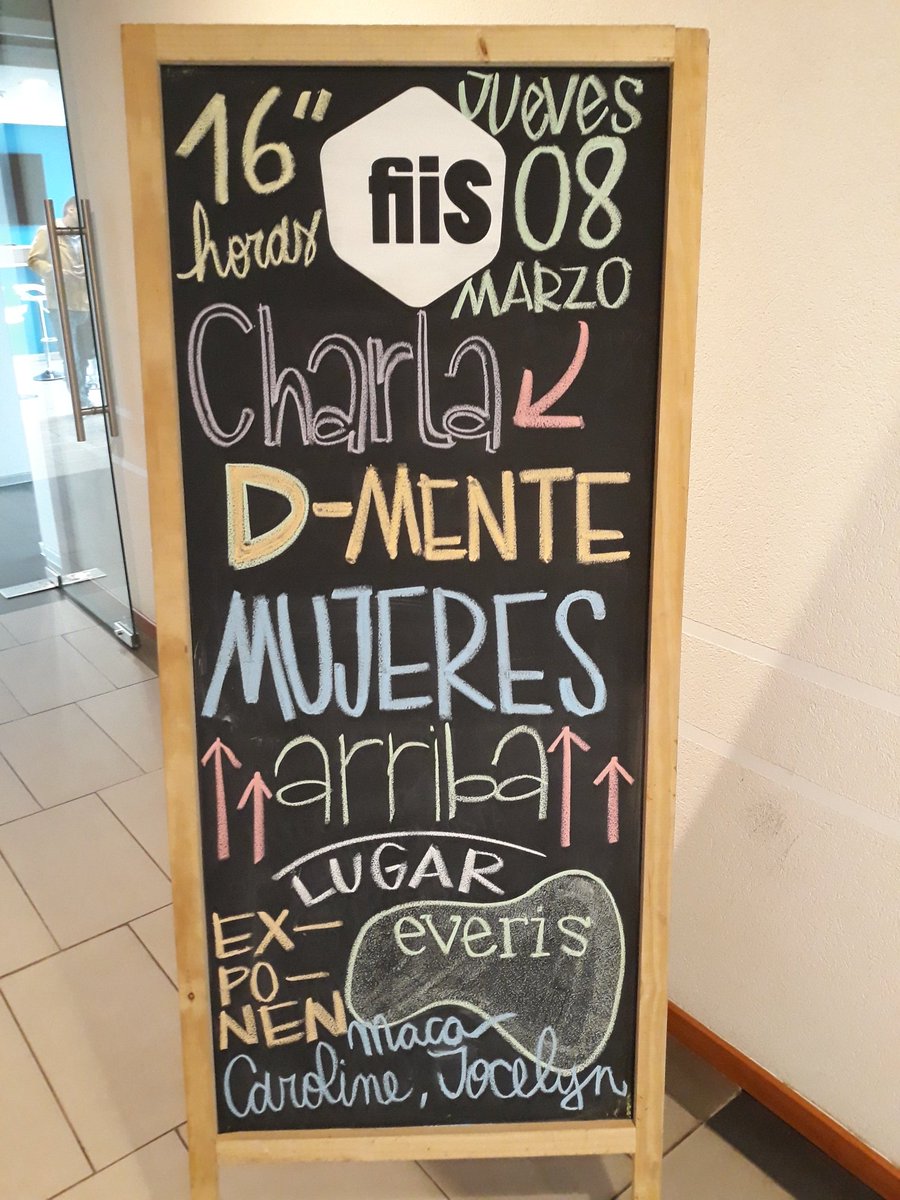 16"
horas
fiis
JUEVES
08
MARZO
Charla
D-MENTE
MUJERES
arriba
LUGAR
everis
EX-
PO-
NEN
Maca
Caroline, Jocelyn